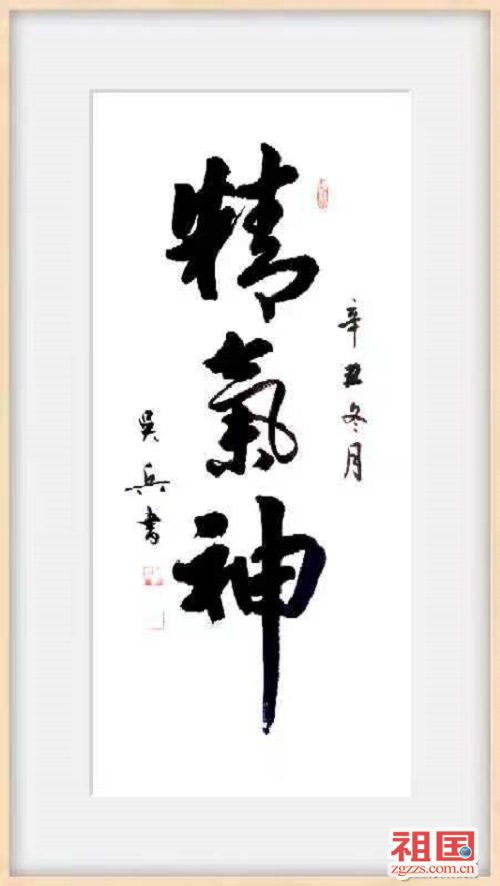 辛丑冬月
精氣神
吴兵書
祖国
zgzzs.com.cn